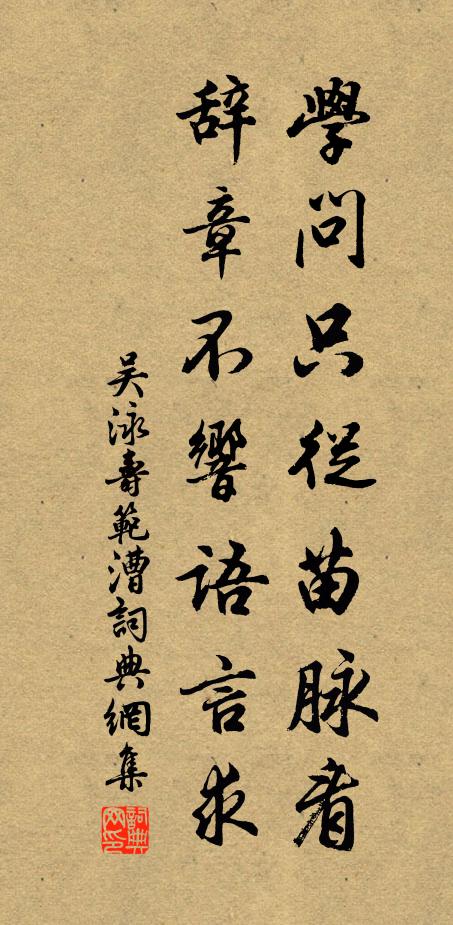 學問只從苗脉看
辭章不響語言求
吴泳壽範漕詞典網集
詞典網印